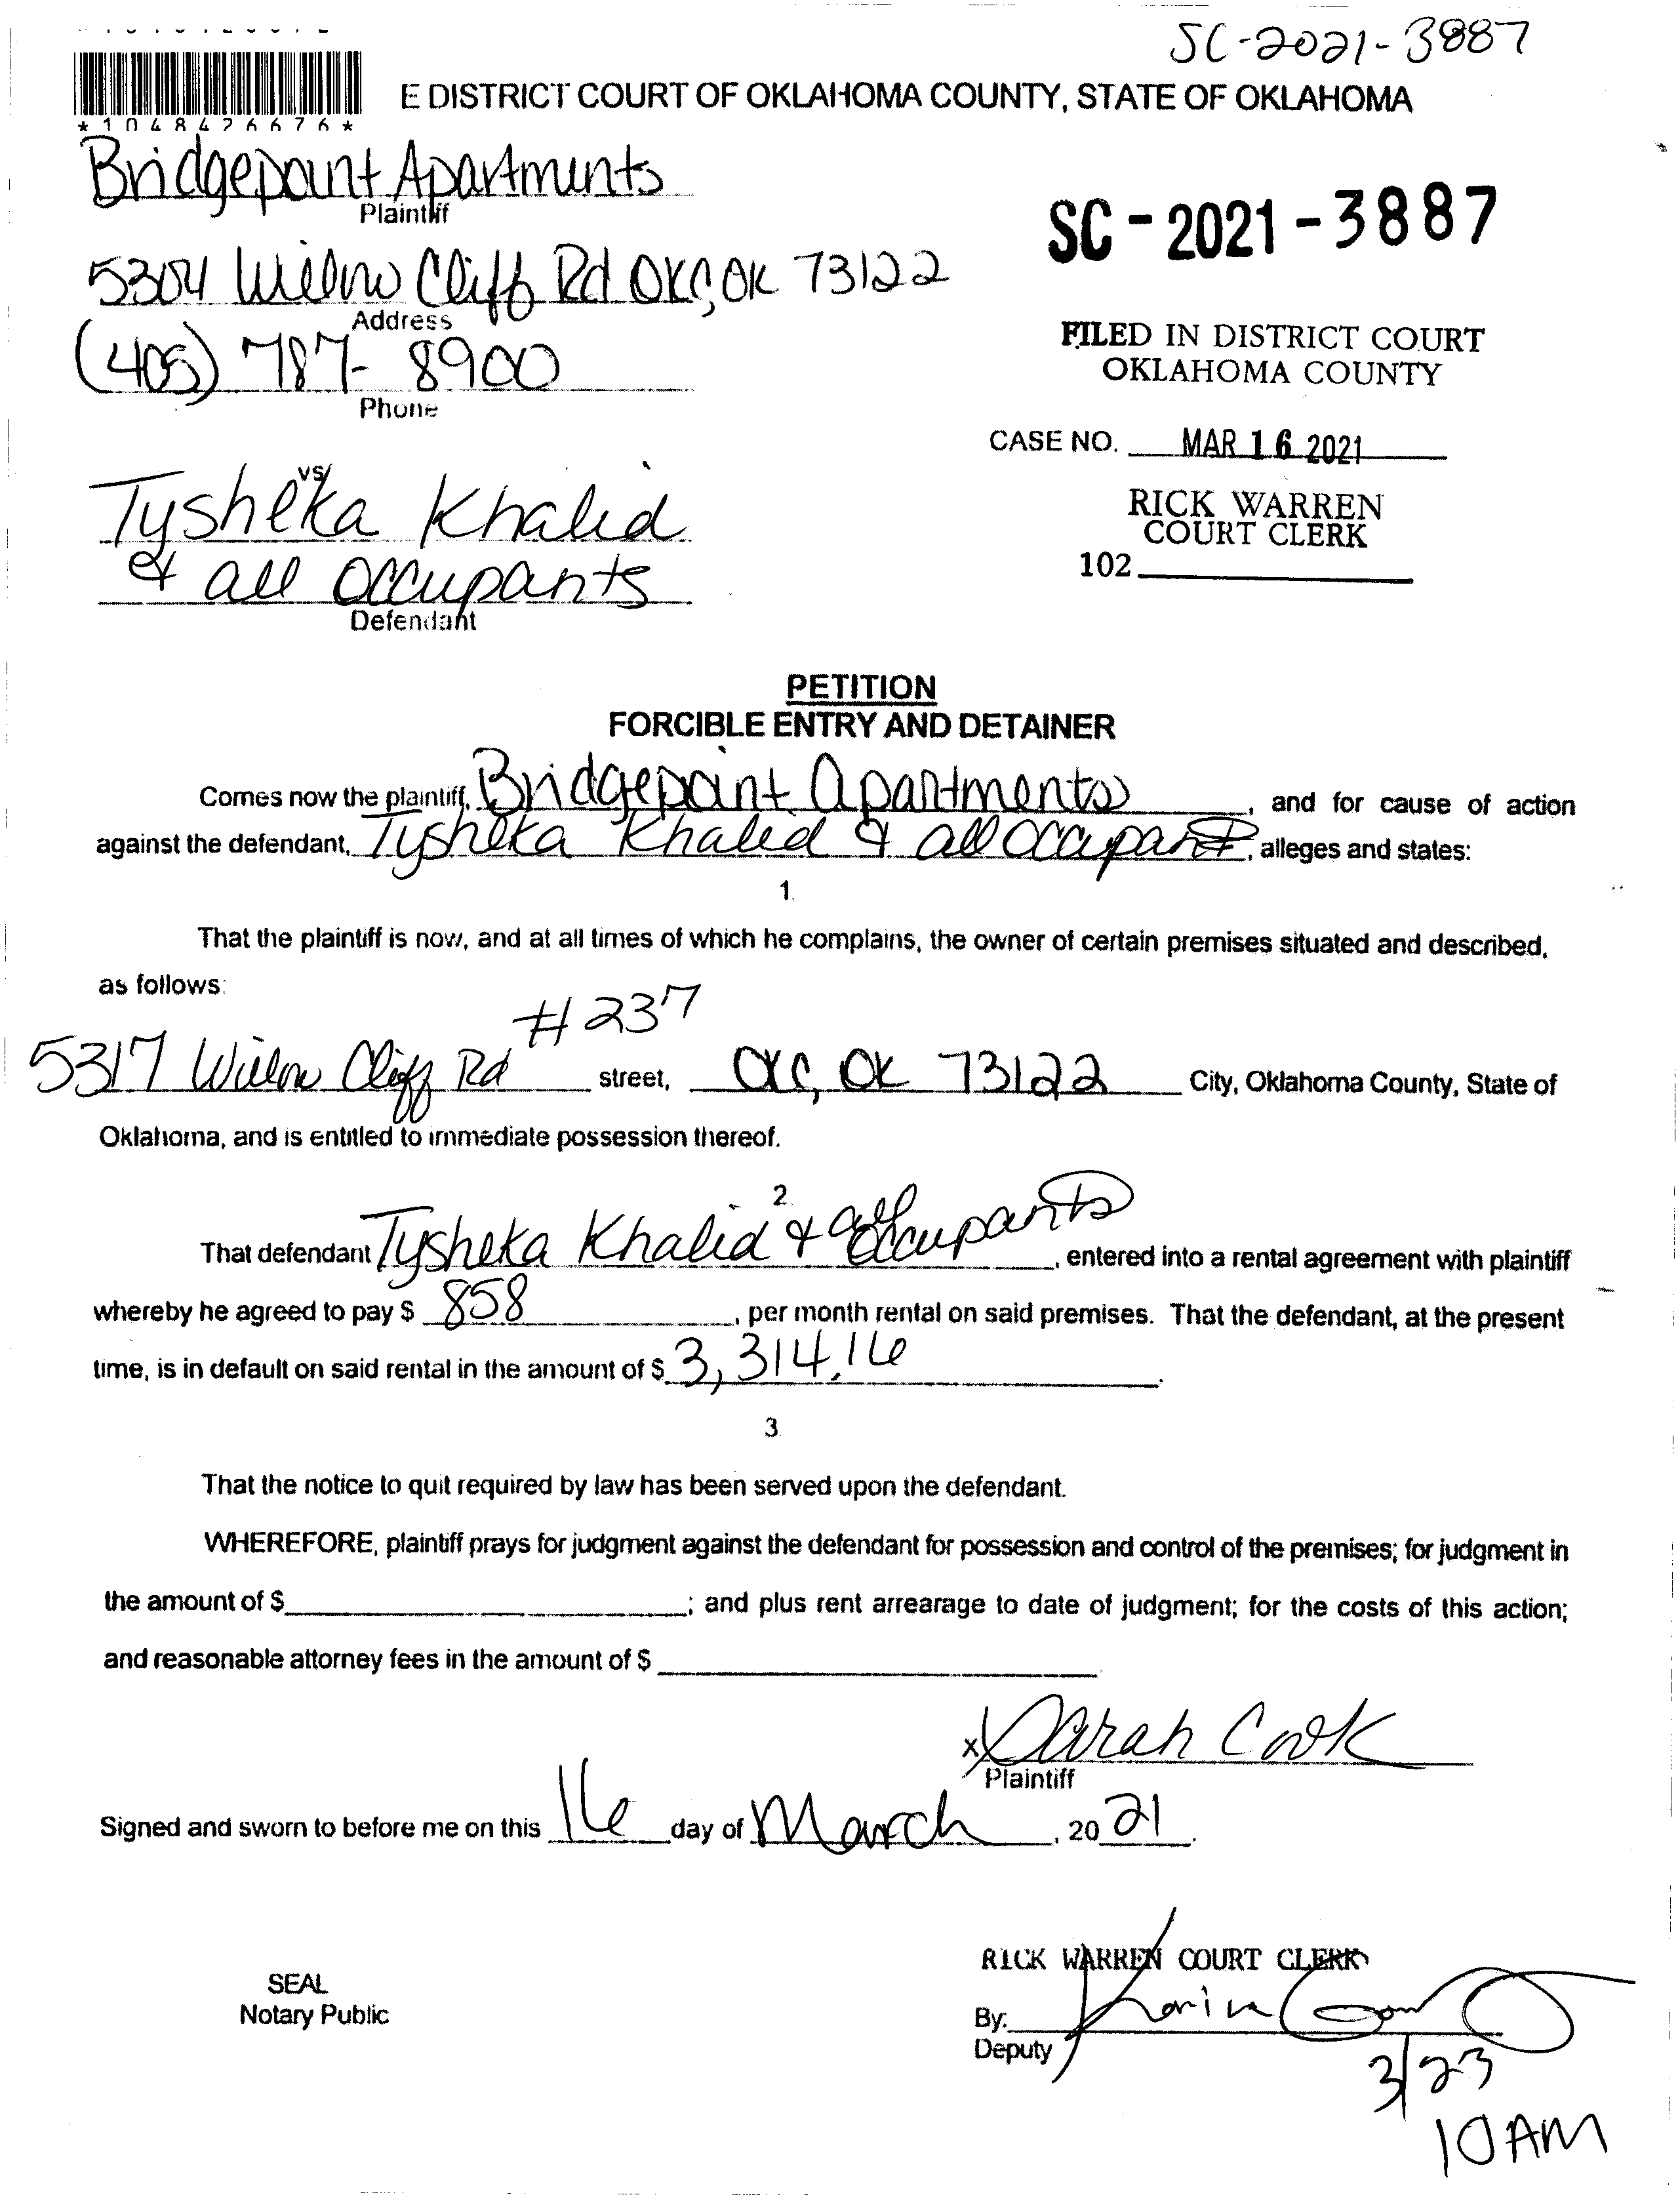 SC-2021-3887
E DISTRICT COURT OF OKLAHOMA COUNTY, STATE OF OKLAHOMA
*1048426676*
Bridgepoint Apartments
Plaintiff
SC-2021-3887
5304 Willow Cliff Rd OKC, OK 73122
Address
FILED IN DISTRICT COURT
OKLAHOMA COUNTY
(405) 787-8900
Phone
CASE NO. MAR 16 2021
vs
Tysheka Khalid
RICK WARREN
COURT CLERK
& all occupants
102
Defendant
PETITION
FORCIBLE ENTRY AND DETAINER
Comes now the plaintiff, Bridgepoint Apartments, and for cause of action
against the defendant, Tysheka Khalid & all occupants, alleges and states:
1.
That the plaintiff is now, and at all times of which he complains, the owner of certain premises situated and described,
as follows:
#237
5317 Willow Cliff Rd street, OKC, OK 73122 City, Oklahoma County, State of
Oklahoma, and is entitled to immediate possession thereof.
2.
That defendant Tysheka Khalid & all occupants, entered into a rental agreement with plaintiff
whereby he agreed to pay $ 858, per month rental on said premises. That the defendant, at the present
time, is in default on said rental in the amount of $ 3,314.16.
3.
That the notice to quit required by law has been served upon the defendant.
WHEREFORE, plaintiff prays for judgment against the defendant for possession and control of the premises; for judgment in
the amount of $ ; and plus rent arrearage to date of judgment; for the costs of this action;
and reasonable attorney fees in the amount of $
x Sarah Cook
Plaintiff
Signed and sworn to before me on this 16 day of March, 2021.
RICK WARREN COURT CLERK
SEAL
Notary Public
By:
Deputy
3/23
10 AM